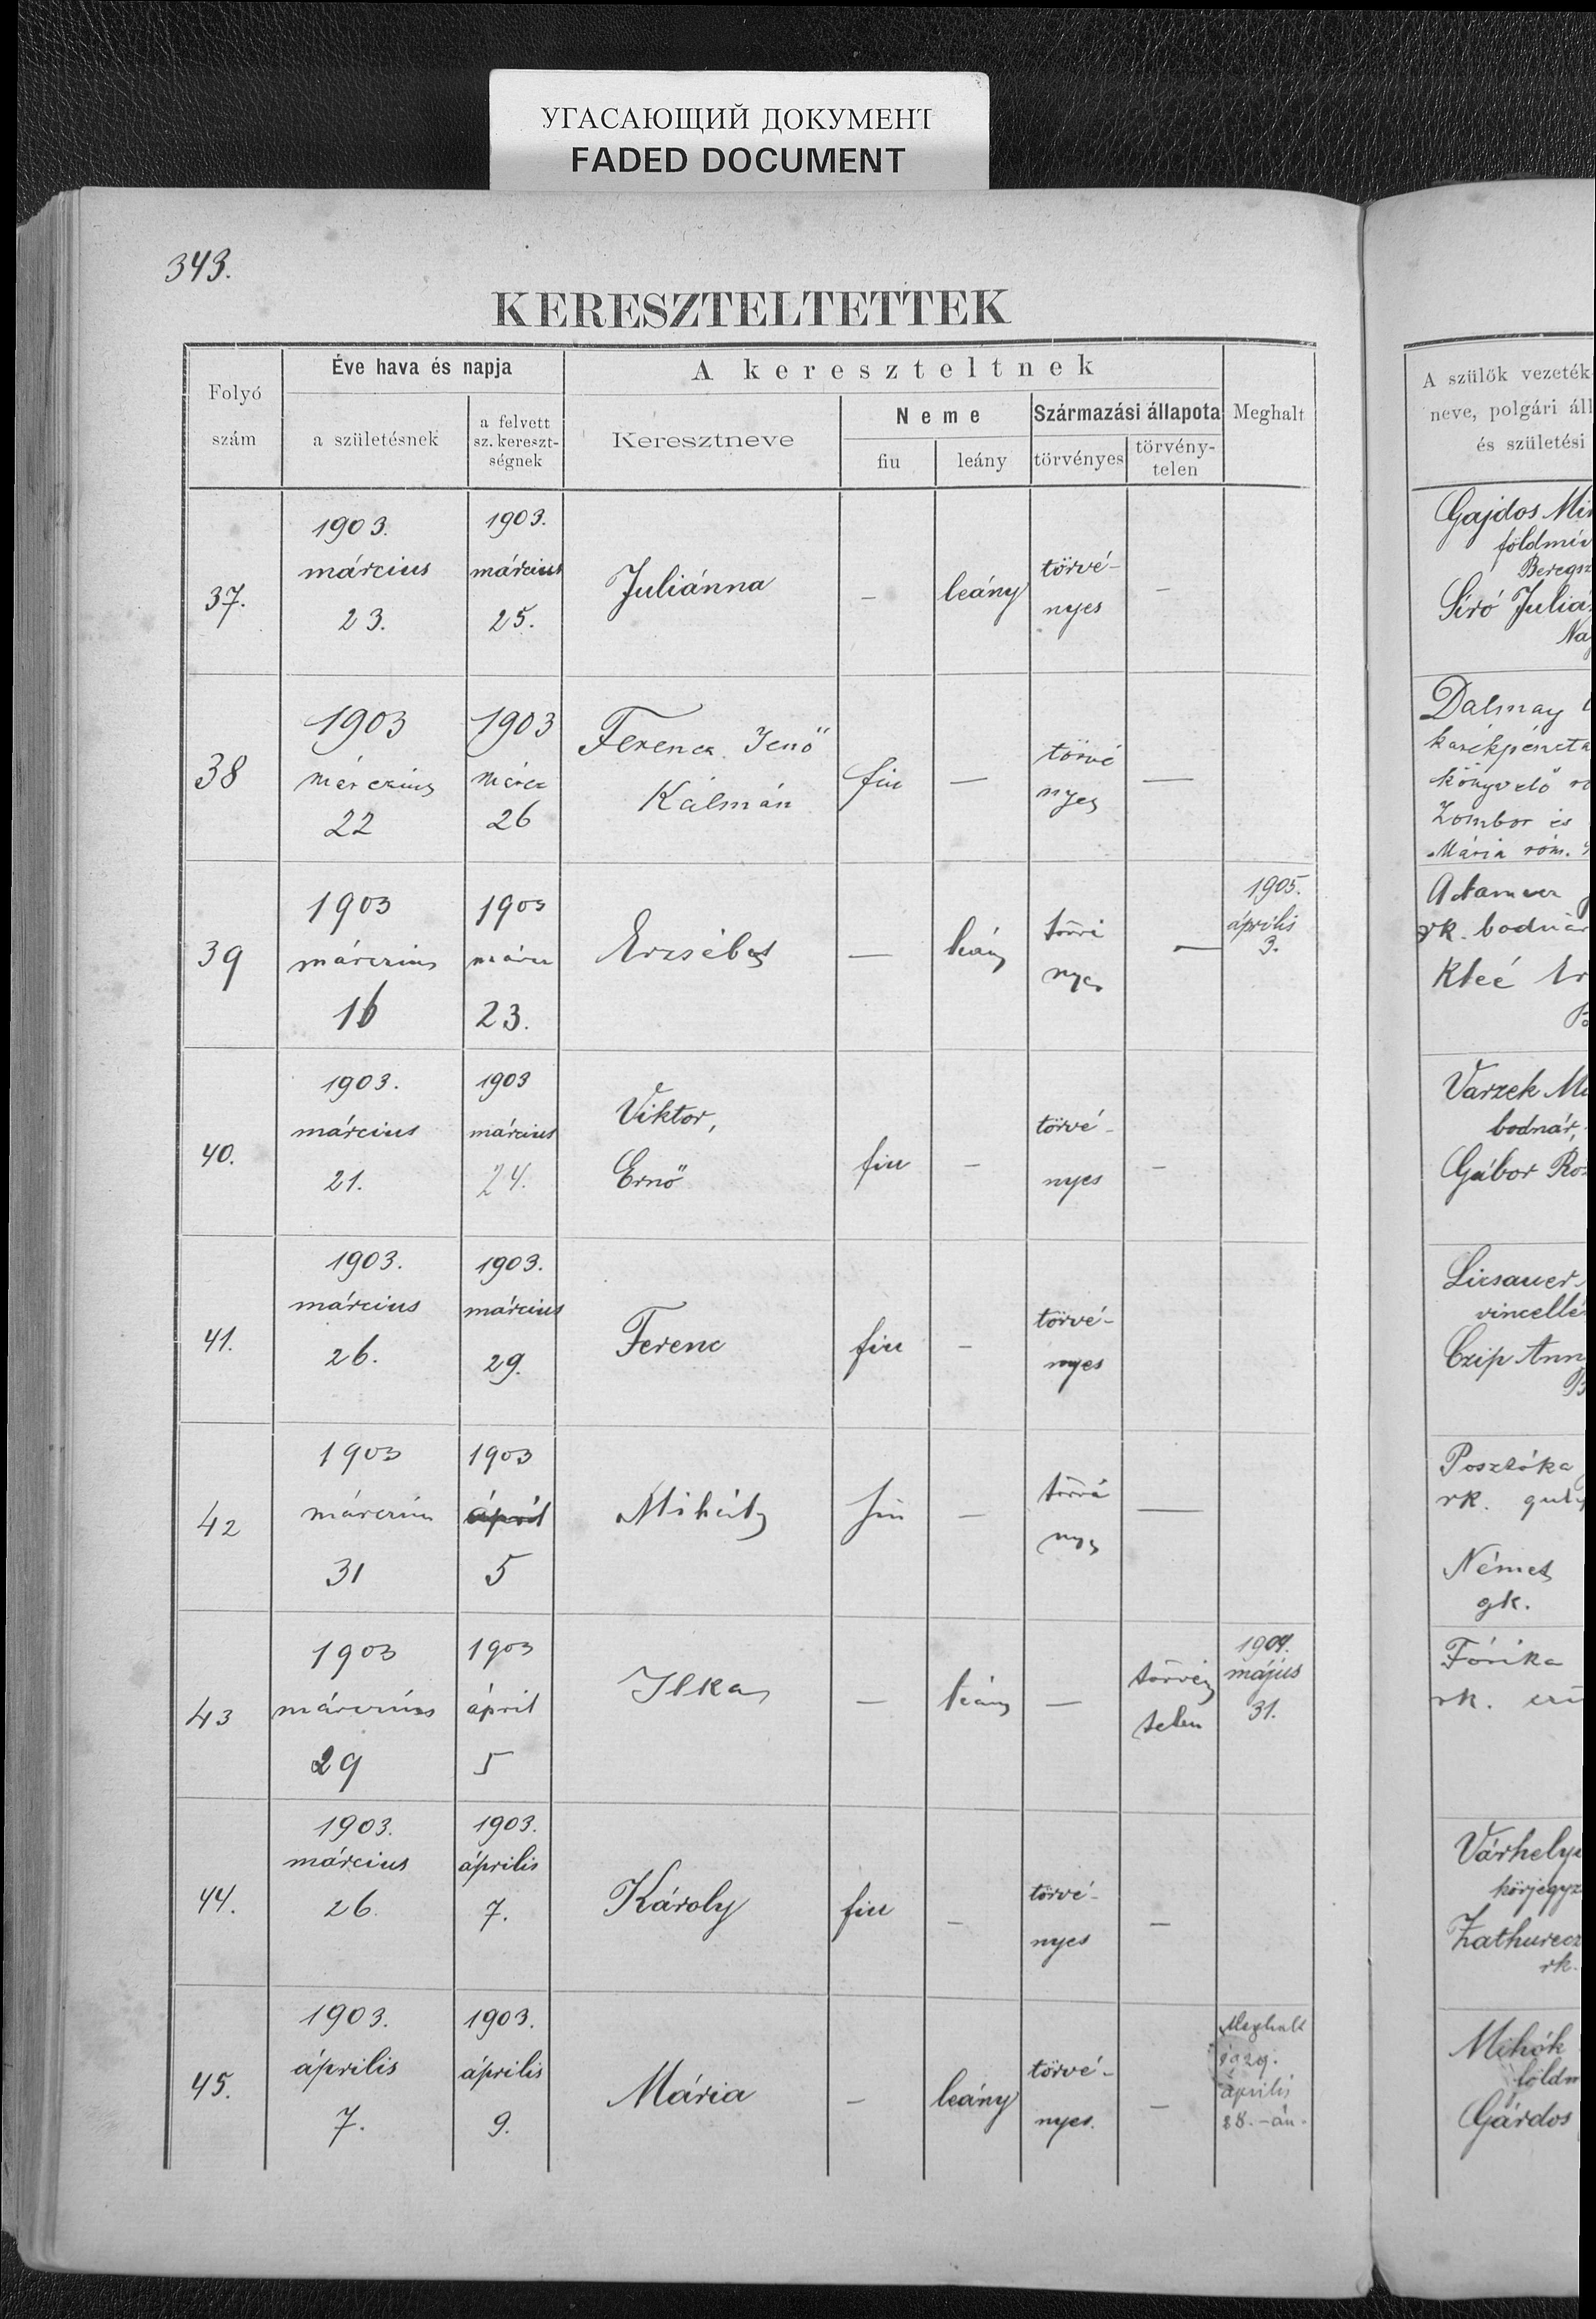 УГАСАЮЩИЙ ДОКУМЕНТ
FADED DOCUMENT
343.
KERESZTELTETTEK
Folyó szám
Éve hava és napja
a születésnek
a felvett sz. kereszt-ségnek
A kereszteltnek
Keresztneve
Neme
fiu
leány
Származási állapota
törvényes
törvény-telen
Meghalt
37.
1903. március 23.
1903. március 25.
Juliánna
–
leány
törvé-nyes
–
38
1903 márczius 22
1903 márcz 26
Ferencz Jenő
Kálmán
fiu
—
törvé nyes
—
39
1903 márczius 16
1903 márcz 23.
Erzsébet
—
leány
törvé nyes
—
1905. április 3.
40.
1903. március 21.
1903 március 24.
Viktor,
Ernő
fiu
–
törvé-nyes
–
41.
1903. március 26.
1903. március 29.
Ferenc
fiu
–
törvé-nyes
42
1903 márczius 31
1903 ápril 5
Mihály
fiu
—
törvé nyes
—
43
1903 márczius 29
1903 ápril 5
Ilka
—
leány
—
törvény telen
május 31.
44.
1903. március 26.
1903. április 7.
Károly
fiu
–
törvé-nyes
–
45.
1903. április 7.
1903. április 9.
Mária
–
leány
törvé-nyes.
–
Meghalt 1929. április 28.-án.
A szülők vezeték
neve, polgári áll
és születési
Gajdos Mi
földmiv
Beregsz
Síró Juliá
Na
Dalmay
könyvelő
Zombor és
Mária róm.
rk. bodnár
Kleé
Varzek M
bodnár,
Gábor Ro
Licsauer
vincellé
Czip Ann
Posztóka
rk.
Német
gk.
Fórika
rk.
Várhely
körjegyz
Zathurecz
rk.
Mihók
földm
Gárdos